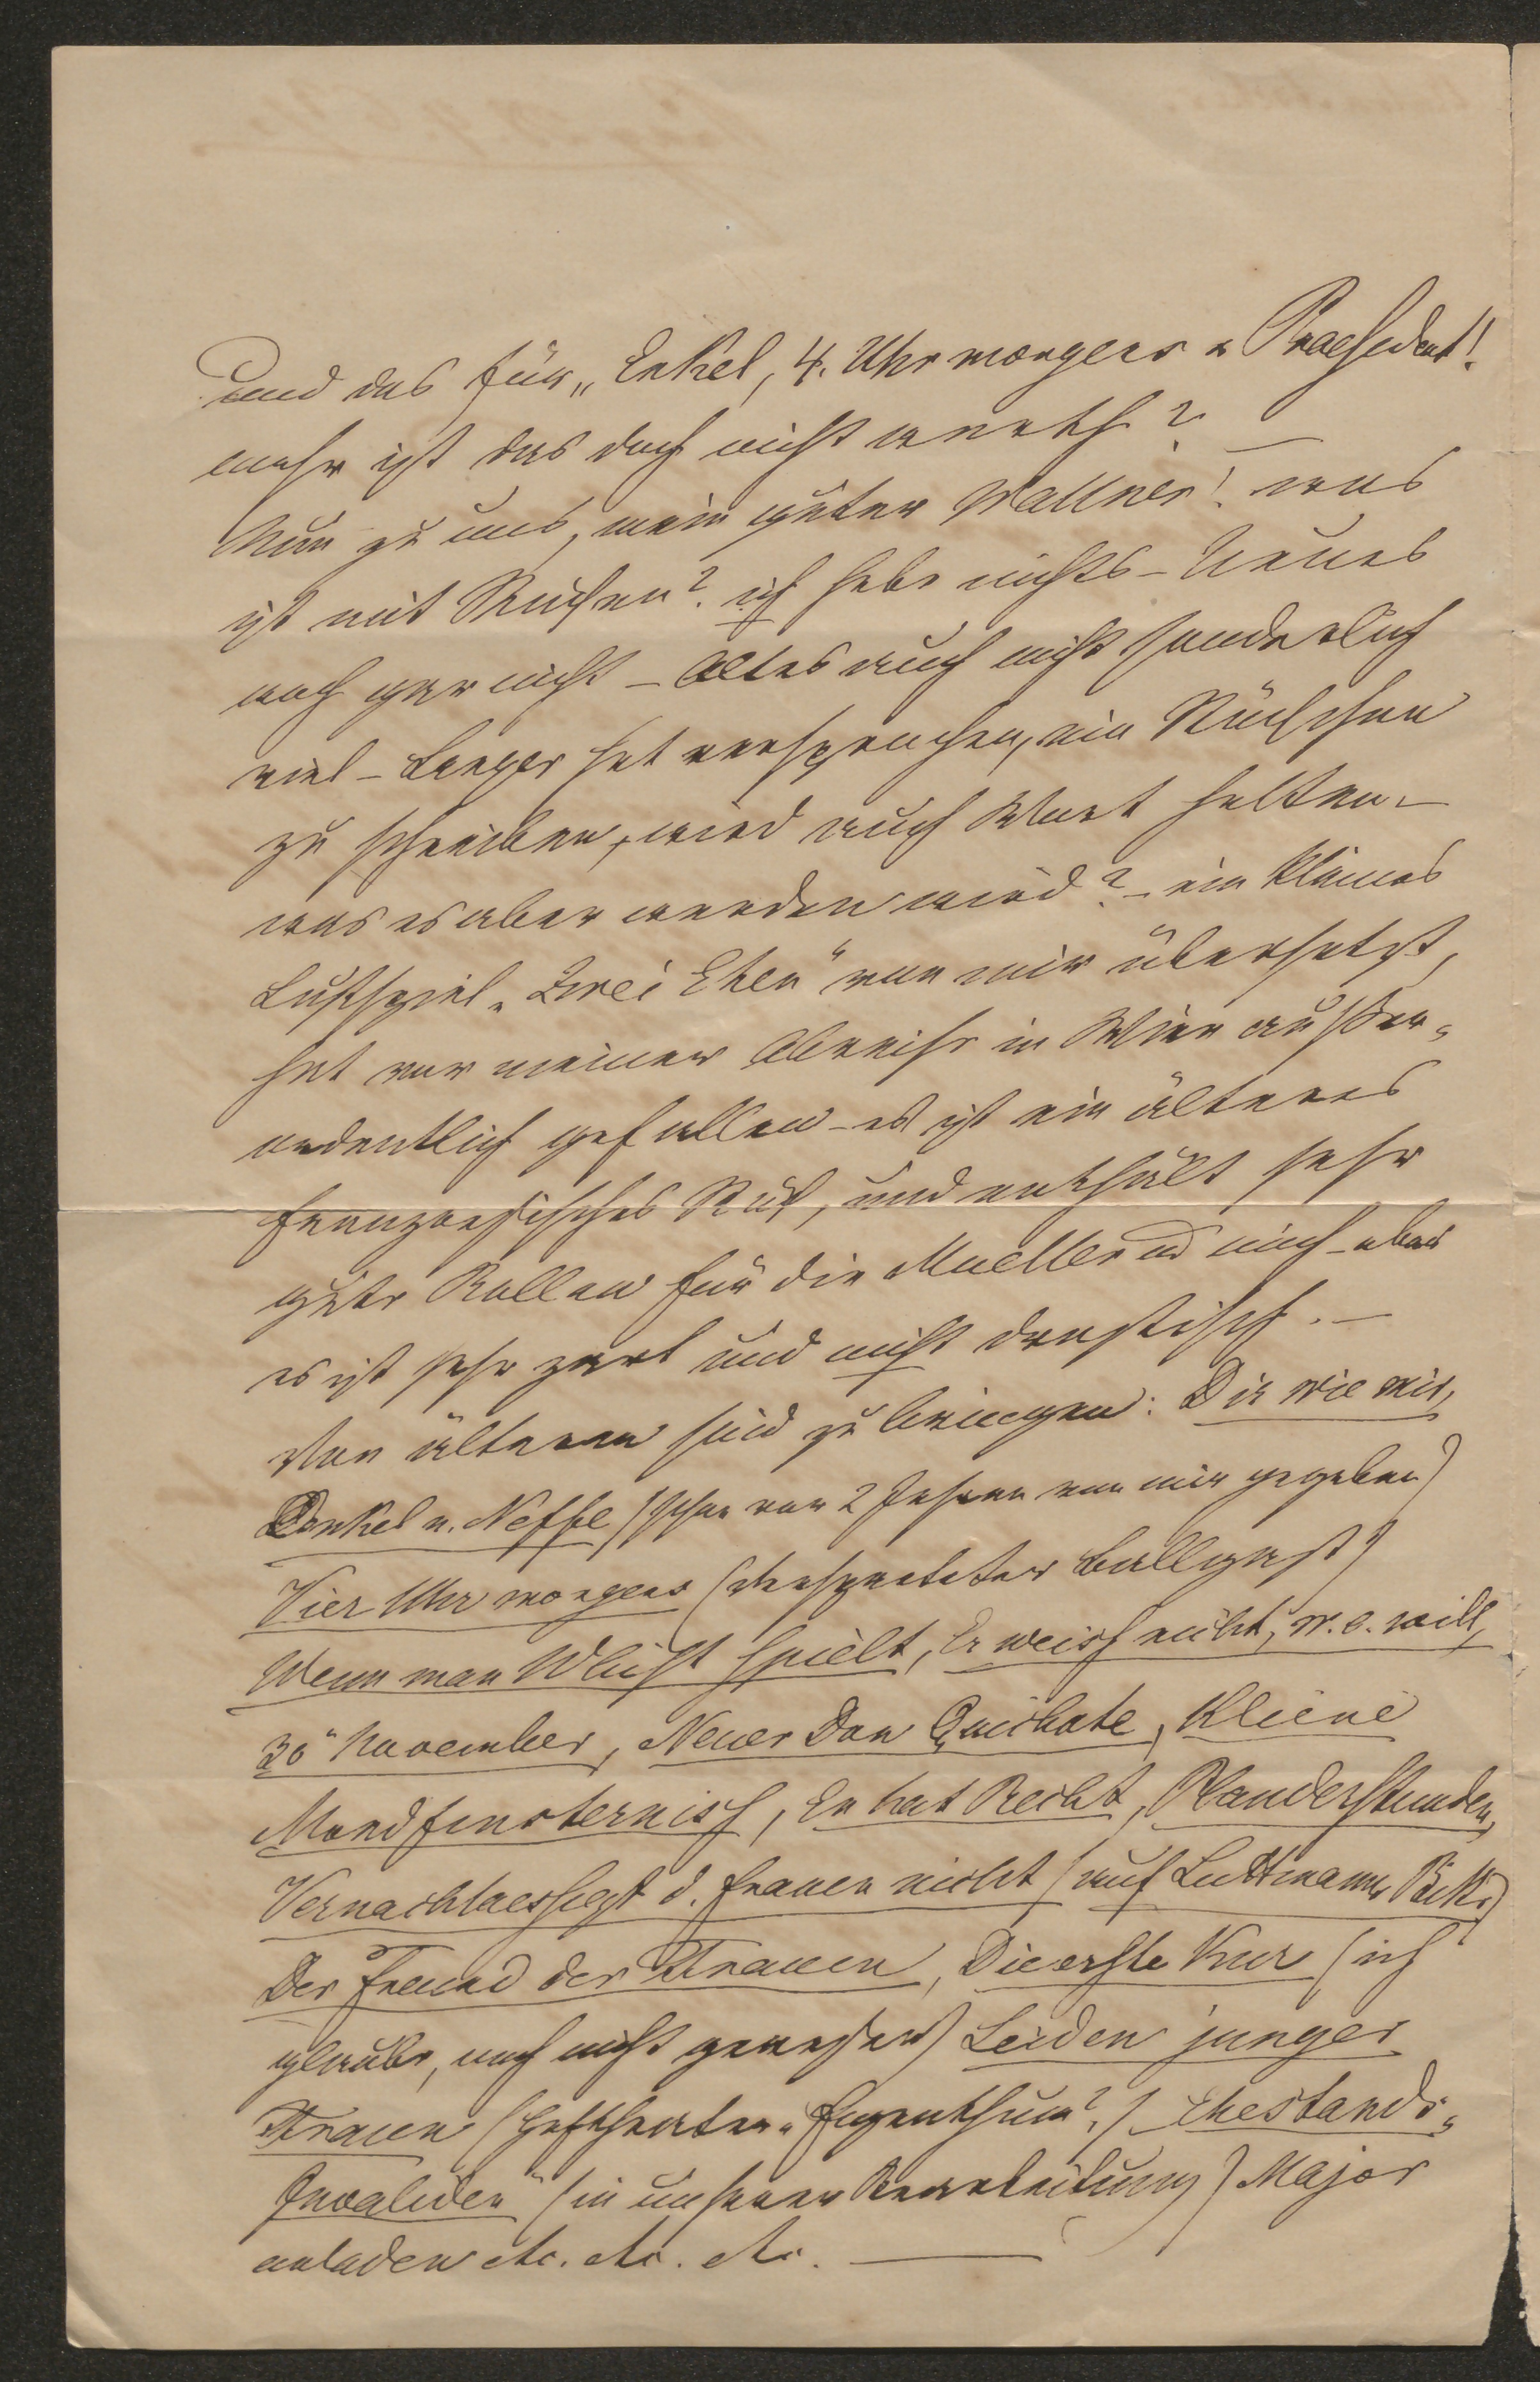 und das für „Enkel, 4. Uhr morgens u Praesident!
mehr ist das doch nicht werth?
Nun zu uns, mein guter Wallner! was
ist mit Stücken? ich habe nichts – Neues
noch gar nicht – Altes auch nicht sonderlich
viel – Berger hat versprochen, ein Stückchen
zu schreiben, wird auch Wort halten –
was es aber werden wird? – ein kleines
Lustspiel „Zwei Ehen“ von mir übersetzt,
hat vor meiner Abreise in Wien außer„
ordentlich gefallen – es ist ein älteres
französisches Stück, und enthält sehr
gute Rollen für die Mueller u mich – aber
es ist sehr zart und nicht drastisch. –
Von älteren sind zu bringen: Dir wie mir,
Onkel u. Neffe (schon vor 2 Jahren von mir gegeben)
Vier Uhr morgens (Verspäteter Ballgast)
Wenn man Whist spielt, Er weiss nicht, w. e. will,
30“ November, Neuer Don Quichote, Kleine
Mondfinsterniss, Er hat Recht, Plauderstunden,
Vernachlaessigt d. Frauen nicht (auf
Der Freund der Frauen, Die erste Kur (ich
glaube, noch nicht gewesen) Leiden junger
Frauen (Hoftheater„ Eigenthum?) Ehestands„
Invaliden“ (in unserer Bearbeitung) Major
entladen etc. etc. etc. —